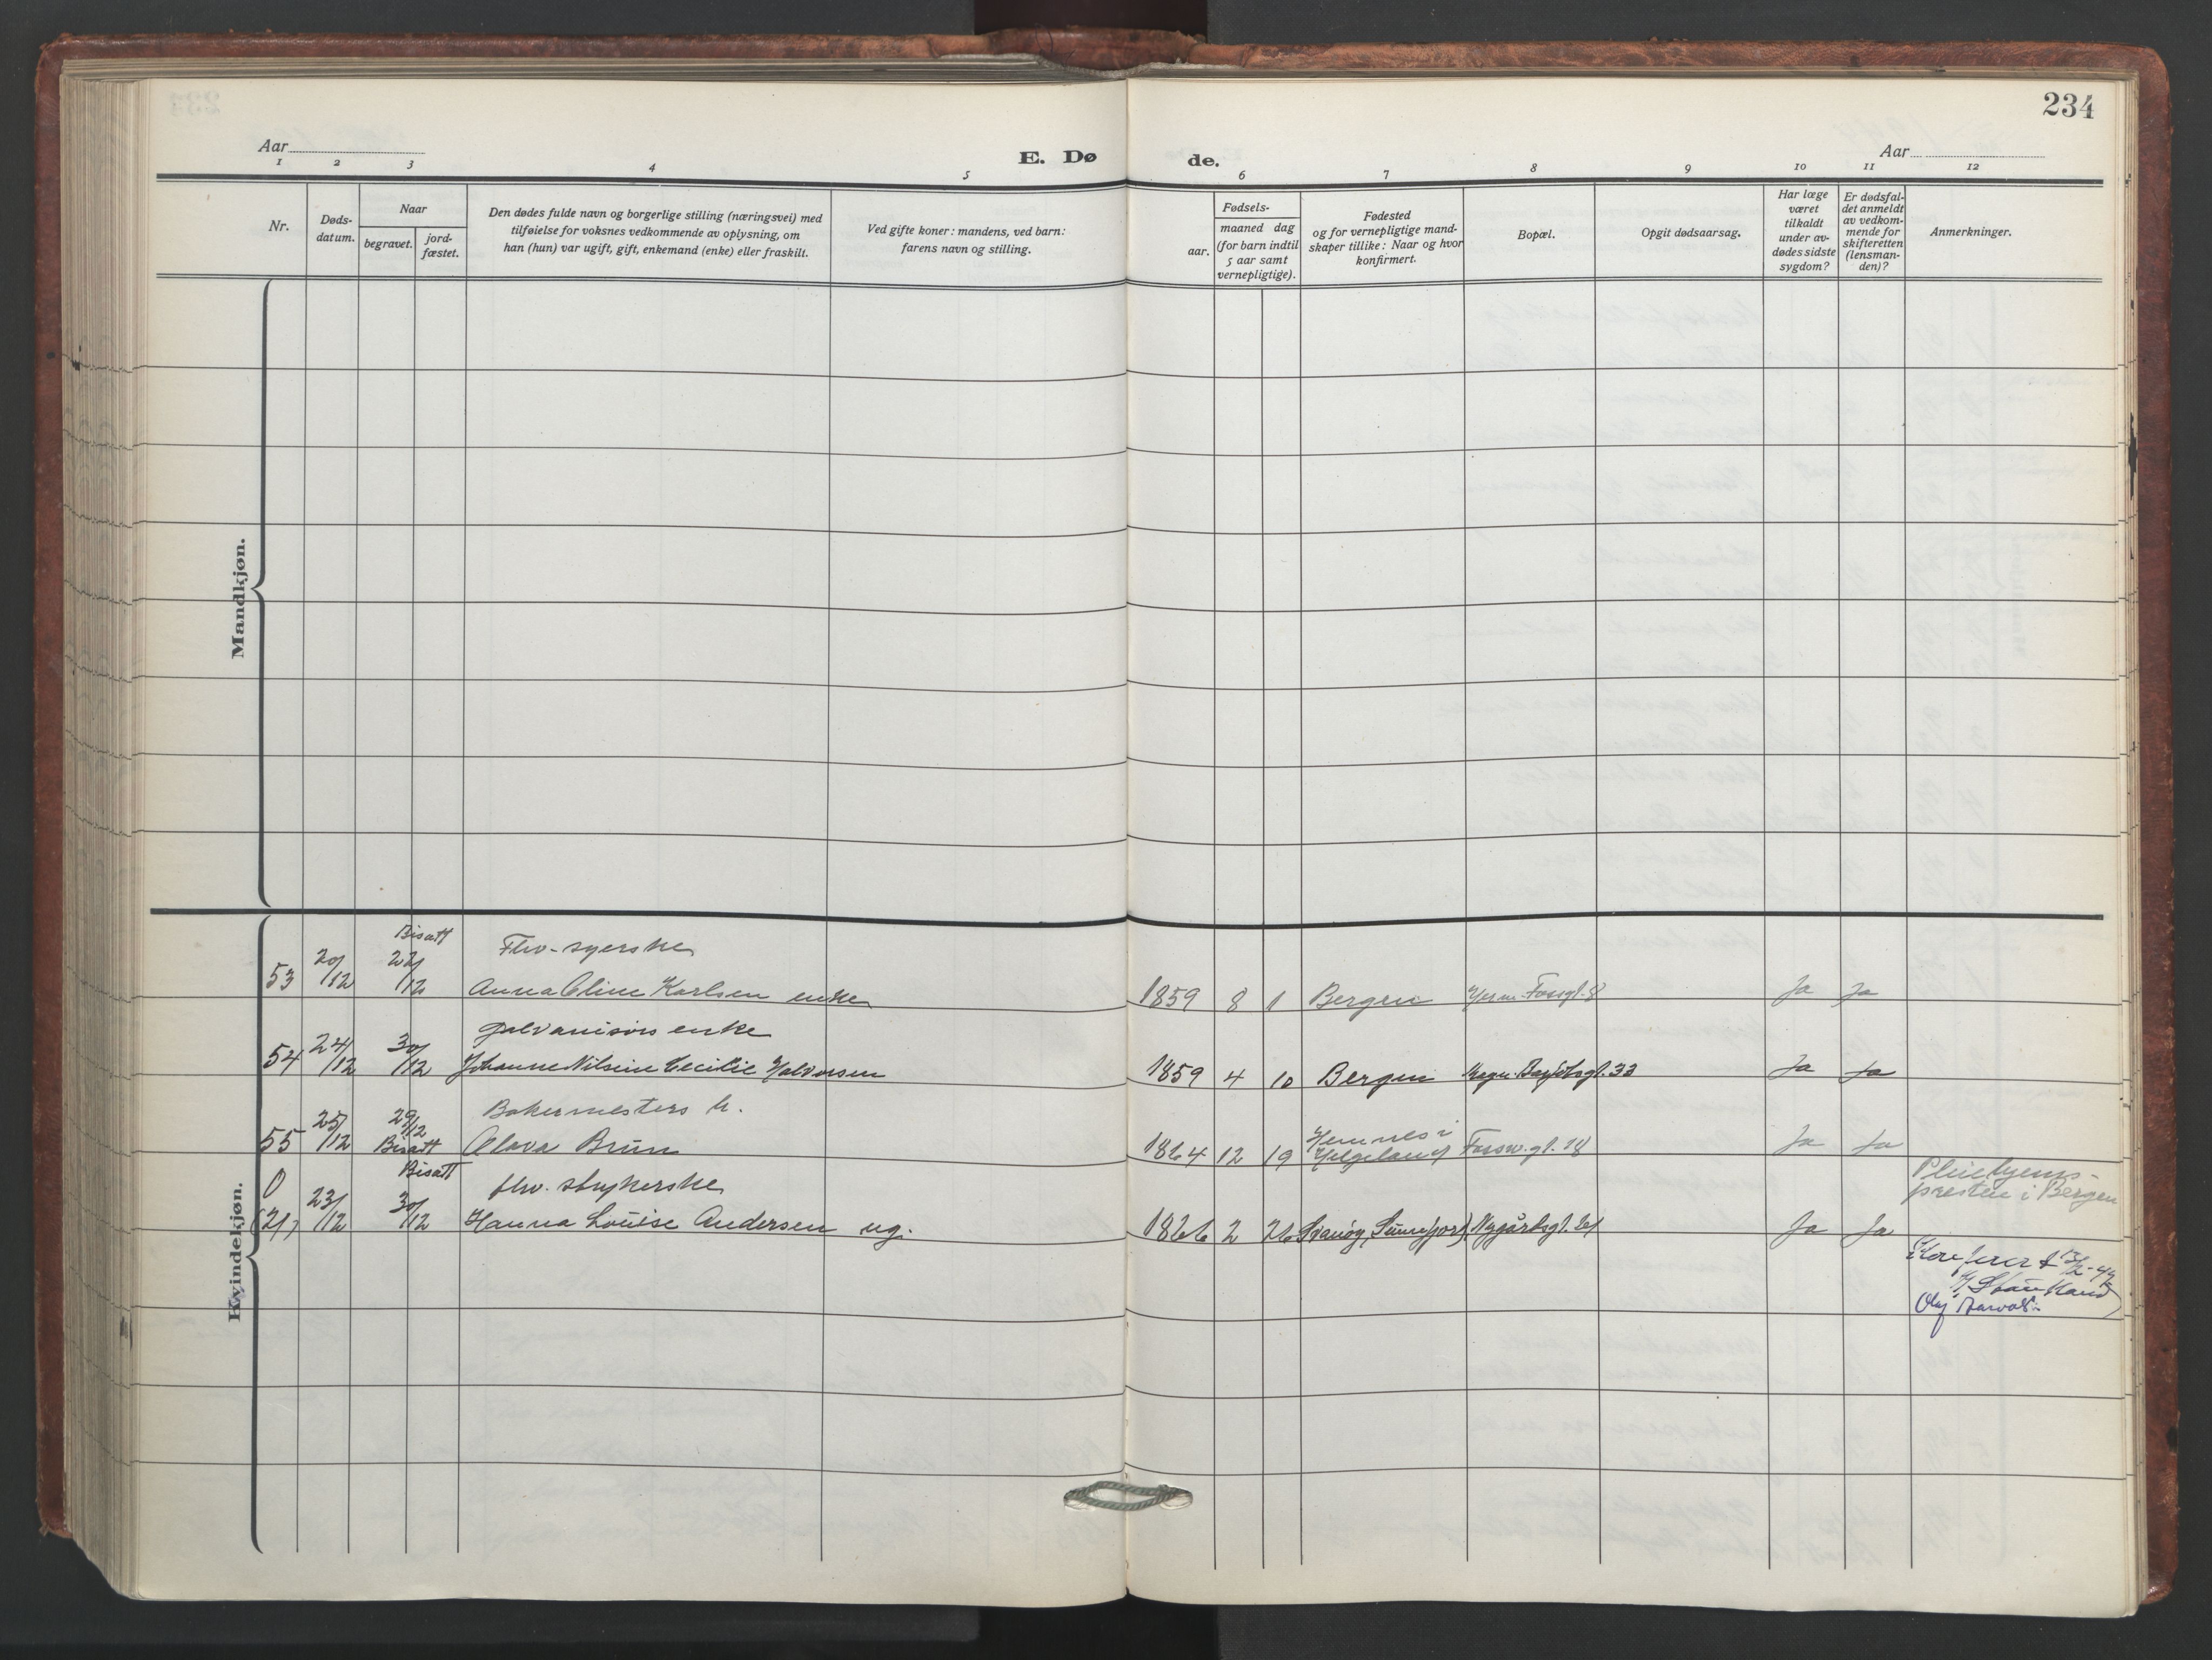 234
Aar
E. Dø de.
Aar
1 2 3 4 5 6 7 8 9 10 11 12
Nr.
Døds-
datum.
Naar
begravet.
jord-
fæstet.
Den dødes fulde navn og borgerlige stilling (næringsvei) med
tilføielse for voksnes vedkommende av oplysning, om
han (hun) var ugift, gift, enkemand (enke) eller fraskilt.
Ved gifte koner: mandens, ved barn:
farens navn og stilling.
Fødsels-
aar.
maaned dag
(for barn indtil
5 aar samt
vernepligtige).
Fødested
og for vernepligtige mand-
skaper tillike: Naar og hvor
konfirmert.
Bopæl.
Opgit dødsaarsag.
Har læge
været
tilkaldt
under av-
dødes sidste
sygdom?
Er dødsfal-
det anmeldt
av vedkom-
mende for
skifteretten
(lensman-
den)?
Anmerkninger.
Mandkjøn.
Kvindekjøn.
Bisatt
Fhv. syerske
53 20/12 22/12 Anna Oline Karlsen enke 1859 8 1 Bergen Herm. Fossgt. 8 Ja Ja
galvanisørs enke
54 24/12 30/12 Johanne Nilsine Cecilie Halvorsen 1859 4 10 Bergen 33 Ja Ja
Bakermesters h.
55 25/12 29/12 Bisatt Olava Brun 1864 12 19 Hemnes i Helgeland Fossw.gt. 18 Ja Ja
Bisatt
fhv. strykerske
0
(21) 23/12 30/12 Hanna Louise Andersen ug. 1866 2 26 Svanøy, Sunnfjord Nygårdsgt. Ja Ja
Pleiehjems-
presten i Bergen
Konferert 15/2-47
H. Straukand
Olaf